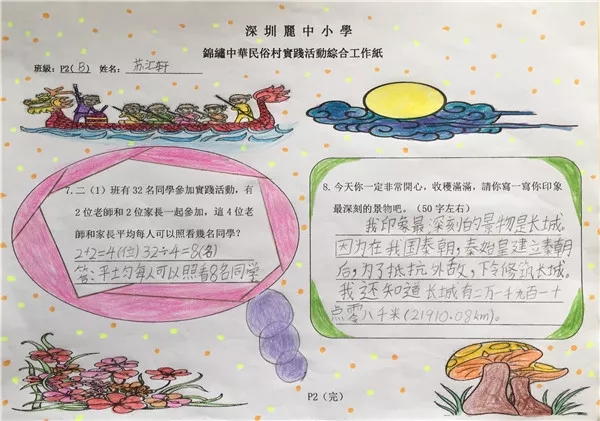 深圳麗中小學
錦繡中華民俗村實踐活動綜合工作紙
班級：P2(B) 姓名：苏汇轩
7.二（1）班有32名同學參加實踐活動，有
2位老師和2位家長一起參加，這4位老
師和家長平均每人可以照看幾名同學？
2+2=4(位) 32÷4=8(名)
答：平土匀每人可以照看8名同堂
8.今天你一定非常開心，收穫滿滿，請你寫一寫你印象
最深刻的景物吧。（50字左右）
我印象最深刻的景物是长城。
因为在我国秦朝，秦始皇建立秦朝
后，为了抵抗外敌，下令修筑长城。
我还知道长城有二万一千九百一十
点零八千米(21910.08km)。
P2（完）